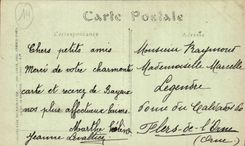 Carte Postale
Correspondance
Adresse
Chers petits amis
Merci de votre charmante
carte et recevez de Bayeux
nos plus affectueux baisers
Marthe
Jeanne
Monsieur Raymond
Mademoiselle Marcelle
Legendre
rue du Calvados
Flers-de-l'Orne
(Orne)